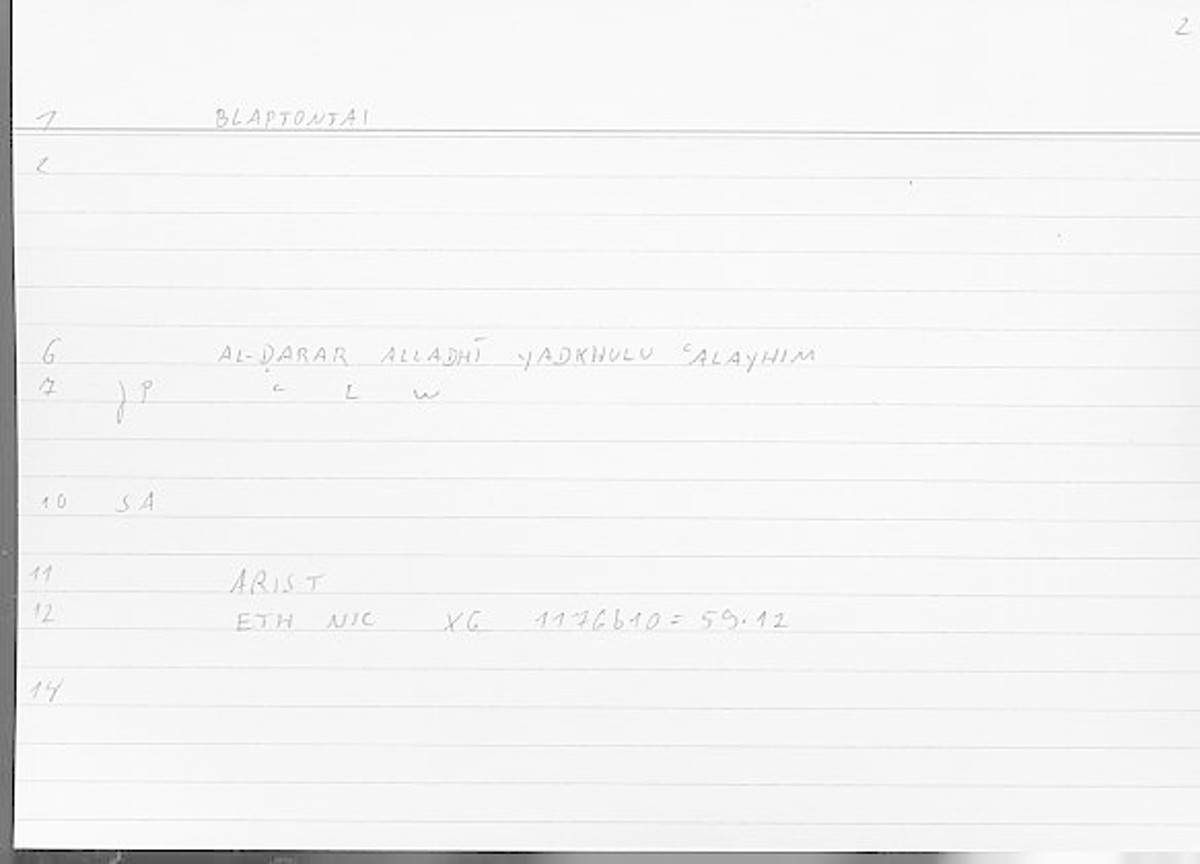 2
1 BLAPTONTAI
2
6 AL-ḌARAR ALLADHĪ YADKHULU ʿALAYHIM
7 P ʿ L W
10 SA
11 ARIST
12 ETH NIC X6 1176b10 = 59.12
14